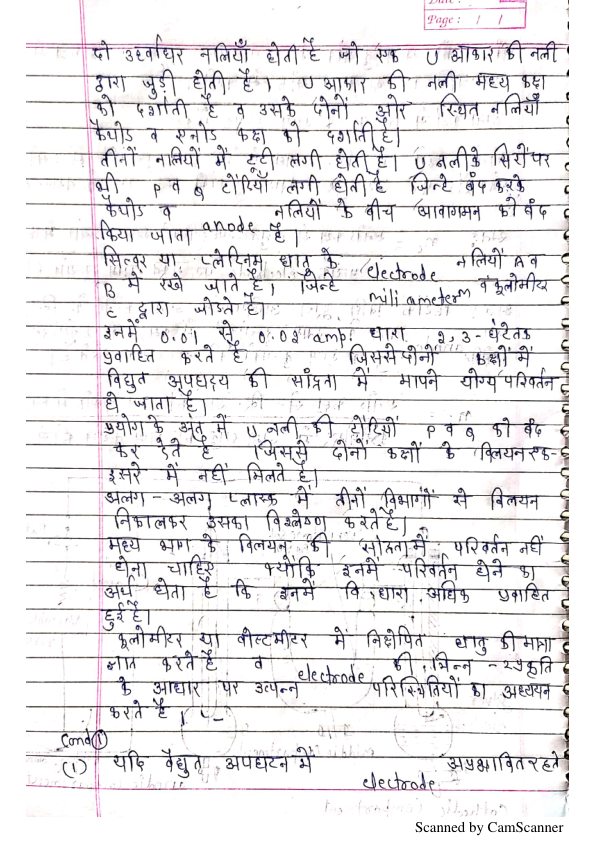 Date :
Page : / /
दो उर्ध्वाधर नलियाँ होती है जो एक U आकार की नली
द्वारा जुड़ी होती है। U आकार की नली मध्य कक्ष
को दर्शाती है व उसके दोनों ओर स्थित नलियाँ
कैथोड व एनोड कक्ष को दर्शाती है।
तीनों नलियों में टूटी लगी होती है। U नली के सिरों पर
भी P व Q टोंटियाँ लगी होती है जिन्हे बंद करके
कैथोड व anode नलियों के बीच आवागमन को बंद
किया जाता है।
सिल्वर या प्लेटिनम धातु के electrode नलियों A व
B मे रखे जाते है। जिन्हे mili ameterm व कूलोमीटर
C द्वारा जोडते है।
इनमें 0.01 से 0.02 amp धारा 2,3-घंटे तक
प्रवाहित करते है जिससे दोनों कक्षों में
विद्युत अपघट्य की सांद्रता में मापने योग्य परिवर्तन
हो जाता है।
प्रयोग के अंत में U नली की टोंटियों P व Q को बंद
कर देते है जिससे दोनों कक्षों के विलयन एक-
दूसरे में नहीं मिलते है।
अलग-अलग फ्लास्क में तीनों विभागों से विलयन
निकालकर उसका विश्लेषण करते है।
मध्य भाग के विलयन की सांद्रता में परिवर्तन नहीं
होना चाहिए क्योकि इनमें परिवर्तन होने का
अर्थ होता है कि इनमें वि. धारा अधिक प्रवाहित
हुई है।
कूलोमीटर या वोल्टमीटर में निक्षेपित धातु की मात्रा
ज्ञात करते है व electrode की भिन्न-२ प्रकृति
के आधार पर उत्पन्न परिस्थितियों का अध्ययन
करते है।
Cond ①
(1) यदि वैद्युत अपघटन में electrode अप्रभावित रहते
Scanned by CamScanner